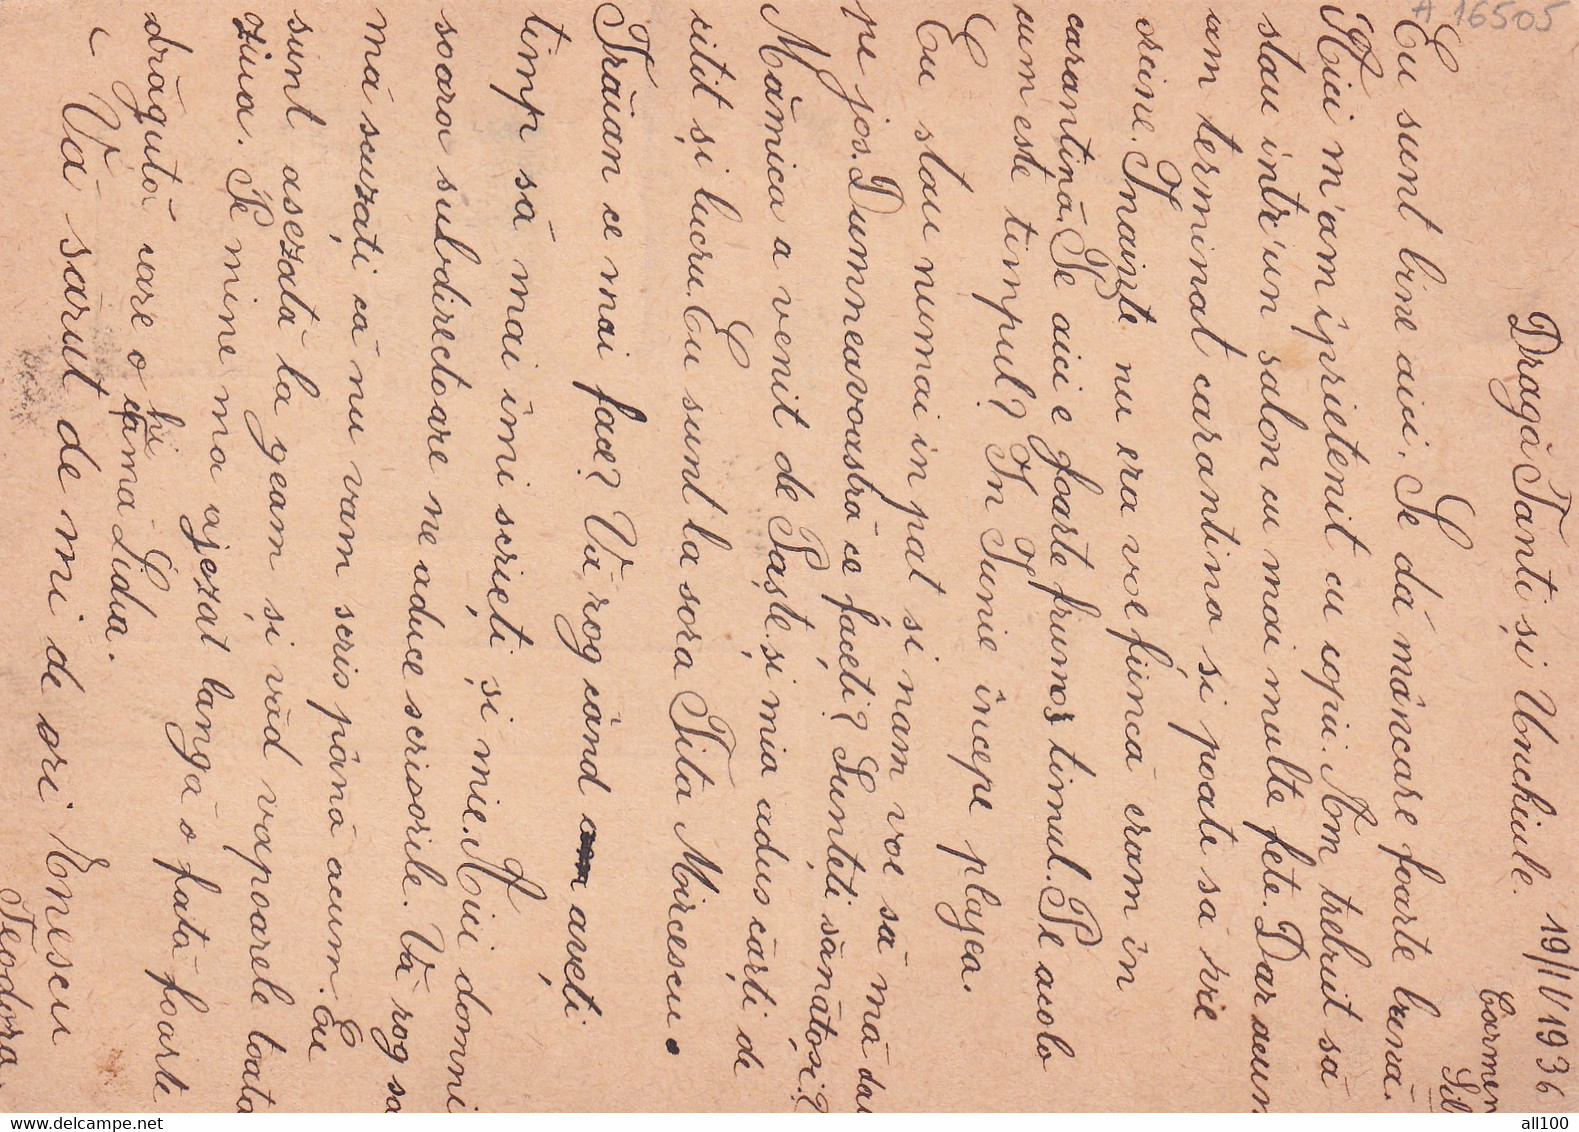 A 16505
19/IV/1936
Carmen
Sil
Dragă Tanti și Unchiule.
Eu sunt bine aici. Se dă mâncare foarte bună.
Aici m'am îprietenit cu copii. Am trebuit să
stau intr'un salon cu mai multe fete. Dar acum
am terminat carantina si poate să vie
oricine. Inainte nu era voe fiincă eram in
carantină. Pe aici e foarte frumos timul. Pe acolo
cum este timpul? In Iunie începe plajea.
Eu stau numai in pat si nam voe să mă dau
pe jos. Dumneavoastră ce faceți? Sunteți sănătoși?
Mămica a venit de Paște și mia adus cărți de
citit și lucru. Eu sunt la sora Tita Mircescu.
Trăian ce mai face? Vă rog când aveți
timp să mai îmi scrieți și mie. Aici domni
soara subdirectoare ne aduce scrisorile. Vă rog sa
mă scuzați că nu vam scris până acum. Eu
sunt asezată la geam și văd vapoarele toată
ziua. Pe mine ma ajezat langă o fată foarte
drăguță care o chiamă Lidia.
Vă sărut de mi de ori Enescu
Teodora.
all100